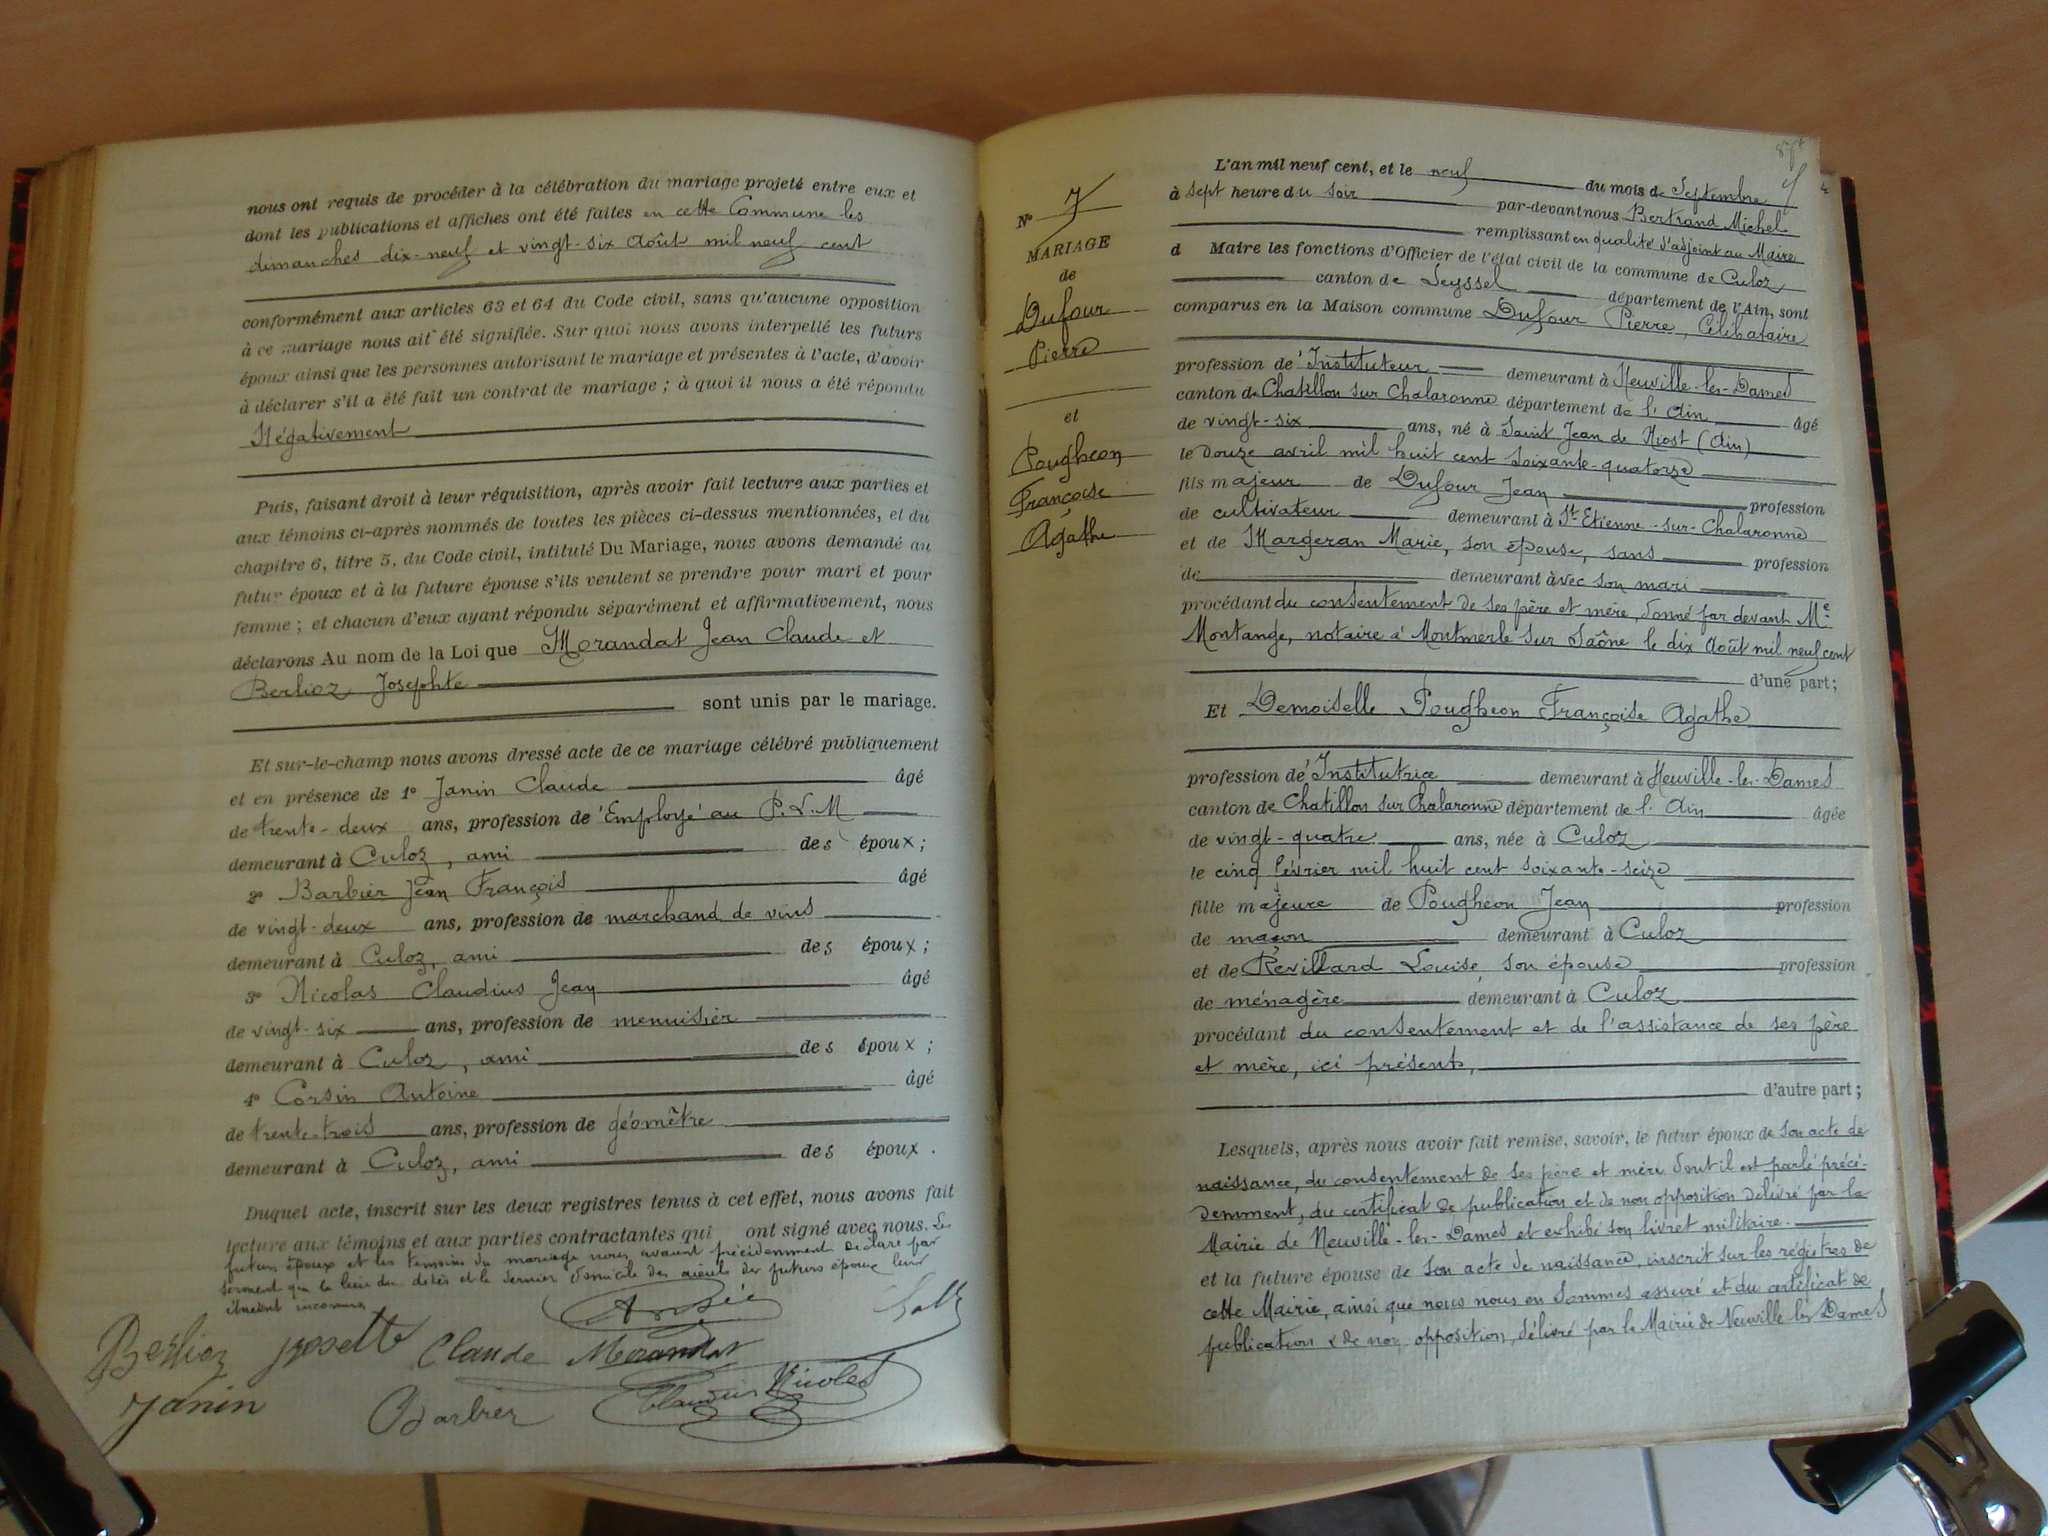 nous ont requis de procéder à la célébration du mariage projeté entre eux et
dont les publications et affiches ont été faites en cette Commune les
dimanches dix-neuf et vingt-six Août mil neuf cent
conformément aux articles 63 et 64 du Code civil, sans qu'aucune opposition
à ce mariage nous ait été signifiée. Sur quoi nous avons interpellé les futurs
époux ainsi que les personnes autorisant le mariage et présentes à l'acte, d'avoir
à déclarer s'il a été fait un contrat de mariage ; à quoi il nous a été répondu
Négativement
Puis, faisant droit à leur réquisition, après avoir fait lecture aux parties et
aux témoins ci-après nommés de toutes les pièces ci-dessus mentionnées, et du
chapitre 6, titre 5, du Code civil, intitulé Du Mariage, nous avons demandé au
futur époux et à la future épouse s'ils veulent se prendre pour mari et pour
femme ; et chacun d'eux ayant répondu séparément et affirmativement, nous
déclarons Au nom de la Loi que Morandat Jean Claude et
Berlioz Josephte
sont unis par le mariage.
Et sur-le-champ nous avons dressé acte de ce mariage célébré publiquement
et en présence de 1º Janin Claude âgé
de trente-deux ans, profession de 'Employé au P.L.M
demeurant à Culoz, ami des époux ;
2º Barbier Jean François âgé
de vingt-deux ans, profession de marchand de vins
demeurant à Culoz, ami des époux ;
3º Nicolas Claudius Jean âgé
de vingt-six ans, profession de menuisier
demeurant à Culoz, ami des époux ;
4º Corsin Antoine âgé
de trente-trois ans, profession de géomètre
demeurant à Culoz, ami des époux .
Duquel acte, inscrit sur les deux registres tenus à cet effet, nous avons fait
lecture aux témoins et aux parties contractantes qui ont signé avec nous. Les
futurs époux et les témoins du mariage nous avaient précédemment déclaré par
serment que le lieu du décès et le dernier domicile des aïeuls des futurs époux leur
étaient inconnus
Berlioz Josette Claude Morandat
Janin Barbier Claudius Nicolas
Nº 7
MARIAGE
de
Dufour
Pierre
et
Pougheon
Françoise
Agathe
L'an mil neuf cent, et le neuf du mois de Septembre
à sept heure du soir par-devant nous Bertrand Michel
remplissant en qualité d'adjoint au Maire
d Maire les fonctions d'Officier de l'état civil de la commune de Culoz
canton de Seyssel département de l'Ain, sont
comparus en la Maison commune Dufour Pierre, Célibataire
profession de 'Instituteur demeurant à Neuville-les-Dames
canton de Chatillon sur Chalaronne département de l'Ain âgé
de vingt-six ans, né à Saint Jean de Niost (Ain)
le douze avril mil huit cent soixante-quatorze
fils majeur de Dufour Jean profession
de cultivateur demeurant à St-Etienne-sur-Chalaronne
et de Margeran Marie, son épouse, sans profession
de demeurant avec son mari
procédant du consentement de ses père et mère, donné par devant Me
Montange, notaire à Montmerle sur Saône le dix Août mil neuf cent
d'une part;
Et Demoiselle Pougheon Françoise Agathe
profession de 'Institutrice demeurant à Neuville-les-Dames
canton de Chatillon sur Chalaronne département de l'Ain âgée
de vingt-quatre ans, née à Culoz
le cinq février mil huit cent soixante-seize
fille majeure de Pougheon Jean profession
de maçon demeurant à Culoz
et de Revillard Louise, son épouse profession
de ménagère demeurant à Culoz
procédant du consentement et de l'assistance de ses père
et mère, ici présents,
d'autre part ;
Lesquels, après nous avoir fait remise, savoir, le futur époux de son acte de
naissance, du consentement de ses père et mère dont il est parlé précé-
demment, du certificat de publication et de non opposition délivré par la
Mairie de Neuville-les-Dames et exhibé son livret militaire.
et la future épouse de son acte de naissance, inscrit sur les régistres de
cette Mairie, ainsi que nous nous en sommes assuré et du certificat de
publication & de non opposition, délivré par la Mairie de Neuville les Dames